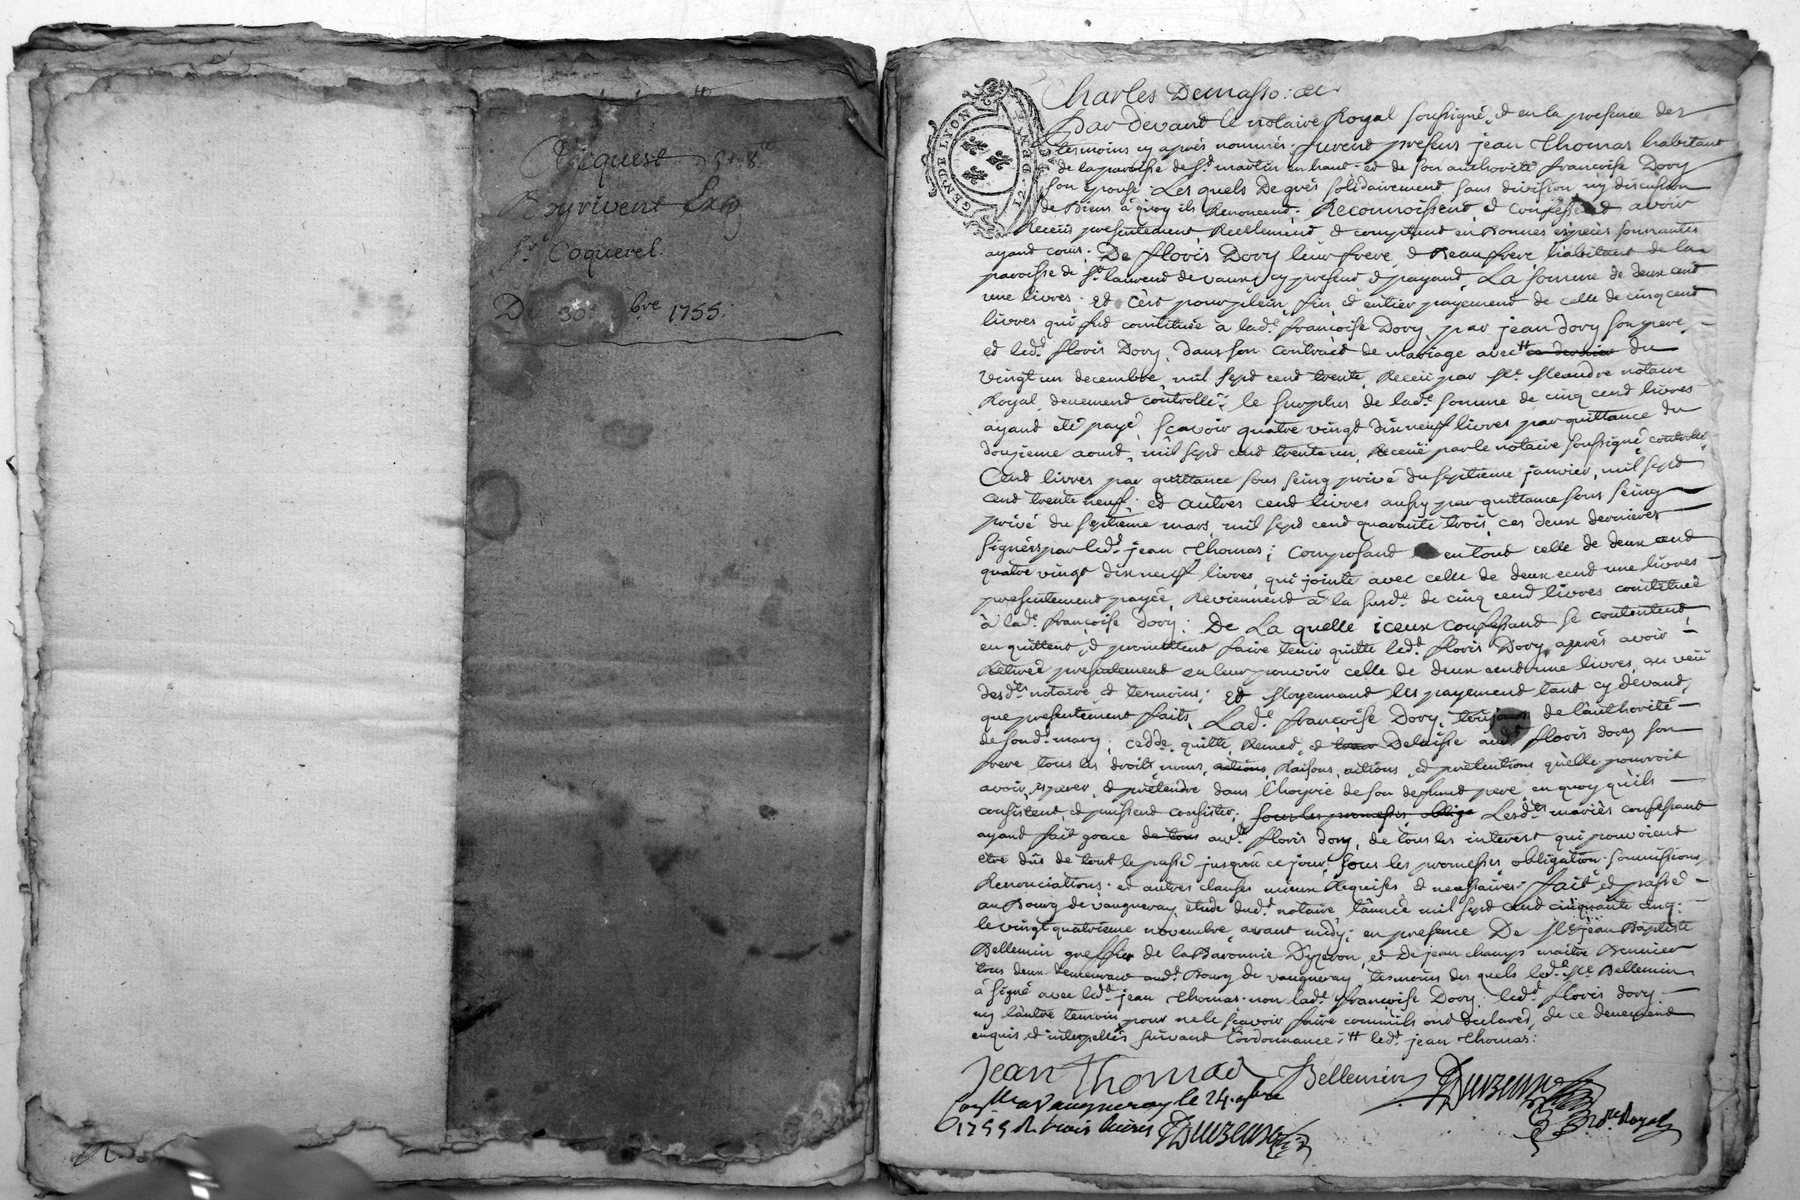 Request
Boyrivent
Sr. Coquerel
Du 30e bre 1755.
GEN. DE LYON
Charles Demasso: &c
Par devant le notaire Royal soussigné, & en la presence des
temoins cy aprés nommés. furent presens jean Thomas habitant
de la paroisse de St. martin en haut. et de son authorité françoise Dory
son epouse. Les quels de grés solidairement sans division ny discussion
de Biens a quoy ils Renoncent. Reconnoissent & confessent avoir
Receus presentement Reellement & comptant en Bonnes especes sonnantes
ayant cours. De floris Dory leur frere & Beaufrere habitant de la
paroisse de St. laurent de vaux cy present & payant, La somme de deux cent
une livres. Et c'est pour plein, fin, et entier payement de celle de cinq cent
livres qui fut constituée à lade. françoise Dory, par jean dory son pere,
et led. floris Dory, dans son contract de mariage avec ce dernier du
vingt un decembre, mil sept cent trente, Receu par Me. notaire
Royal, deuement controllé; le surplus de lade. somme de cinq cent livres
ayant eté payé, sçavoir quatre vingt dixneuf livres par quittance du
douzieme aoust, mil sept cent trente un, Receüe par le notaire soussigné controllée
Cent livres par quittance sous seing privé du septieme janvier, mil sept
cent trente neuf; et autres cent livres aussy par quittance sous seing
privé du septieme mars, mil sept cent quarante trois, ces deux dernieres
signées par led. jean Thomas; composant en tout celle de deux cent
quatre vingt dixneuf livres, qui jointe avec celle de deux cent une livres
presentement payée, Reviennent à la susde. de cinq cent livres constituée
à lade. françoise dory; De La quelle iceux confessant se contentent,
en quittent, & promettent faire tenir quitte led. floris Dory, aprés avoir
Retirée presentement en leur pouvoir celle de deux cent une livres, au veü
desds. notaire & temoins. Et Moyennant les payement tant cy devant,
que presentement faits, Lade. françoise Dory, toujours de l'authorité
de sond. mary, cedde, quitte, Remet, & Delaisse aud. floris dory son
frere, tous les droits noms, actions, Raisons, actions, et pretentions qu'elle pourroit
avoir, esperer, & prétendre dans l'hoyrie de son deffunt pere, en quoy qu'ils
consistent, & puissent consister, sous les promesses, oblige Lesds. mariés confessant
ayant fait grace de tous aud. floris dory, de tous les interest qui pouvoient
etre dûs de tout le passé jusqu'a ce jour, sous les promesses obligation, soumissions,
Renonciations. et autres clauses mieux Requises, & necessaires. fait et passé
au Bourg de vaugneray, etude dud. notaire, l'année mil sept cent cinquante cinq,
le vingt quatrieme novembre, avant midy; en presence De Me. jean Baptiste
Bellemin greffier de la Baronnie D'yzeron, et De jean champ maitre
tous deux demeurant aud. Bourg de vaugneray, temoins des quels led. Me. Bellemin
a signé avec led. jean Thomas. non lade. françoise Dory. led. floris dory.
ny l'autre temoin, pour ne le sçavoir faire comm'ils ont declarés, de ce deuement
enquis et interpellés suivant l'ordonnance. led. jean Thomas.
Jean Thomas Bellemin
a Vaugneray le 24. 9bre
1755 Rt. trois livres
Re. Royal